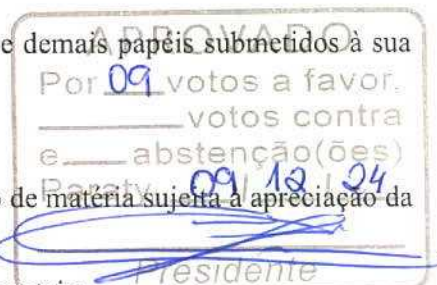 e demais papéis submetidos à sua
APROVADO
Por 09 votos a favor.
votos contra
e abstenção(ões)
Paraty, 09/12/24
o de matéria sujeita à apreciação da
Presidente